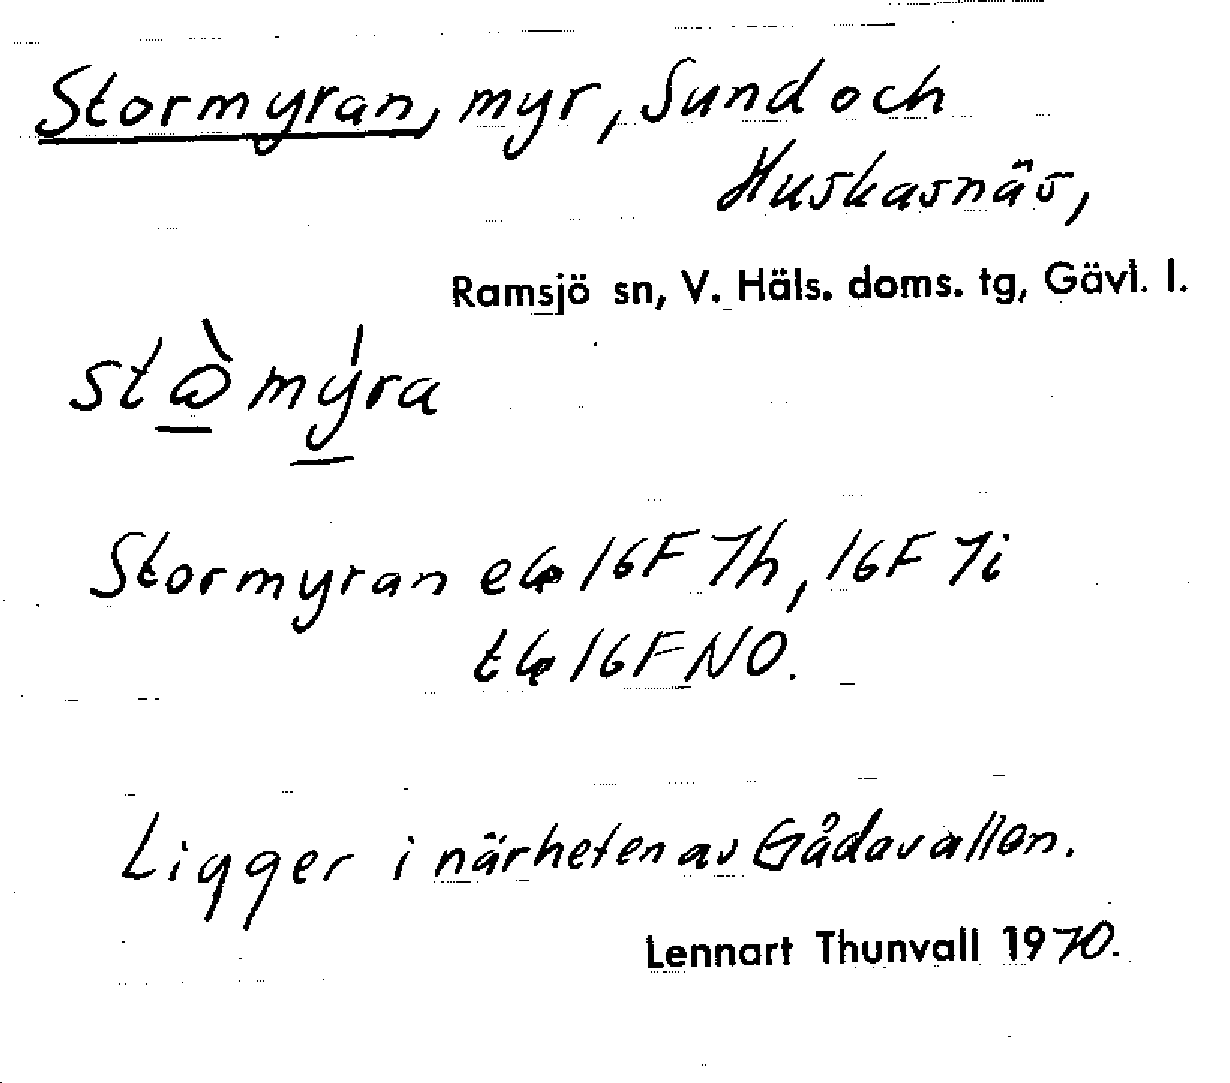 Stormyran, myr, Sund och
Huskasnäs,
Ramsjö sn, V. Häls. doms. tg, Gävl. l.
Stormyran 16F 7h, 16F 7i
16F NO.
Ligger i närheten av Gådavallen.
Lennart Thunvall 1970.